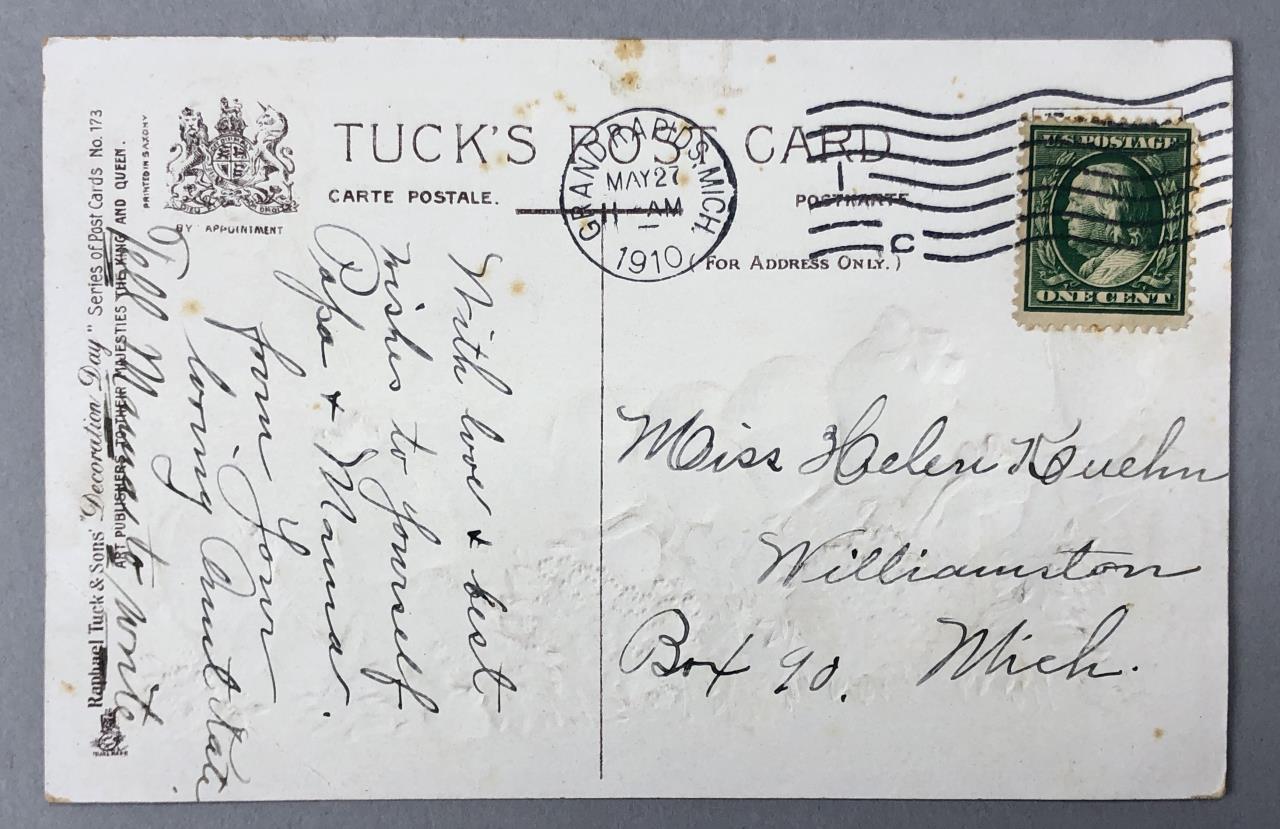 TUCK'S POST CARD
CARTE POSTALE.
POSTKARTE
(FOR ADDRESS ONLY.)
BY APPOINTMENT
PRINTED IN SAXONY
Raphael Tuck & Sons' "Decoration Day" Series of Post Cards No. 173
ART PUBLISHERS TO THEIR MAJESTIES THE KING AND QUEEN.
GRAND RAPIDS, MICH.
MAY 27
11 - AM
1910
1
C
U.S. POSTAGE
ONE CENT
With love & best
wishes to yourself
Papa & Mama.
from your
loving Aunt Kate.
Tell Mama to write
Miss Helen Kuehn
Williamston
Box 90. Mich.